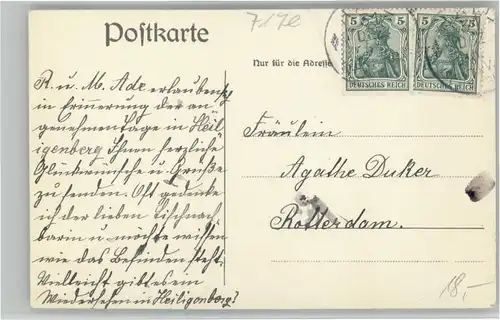 Postkarte
7192
5 5
5 5
DEUTSCHES REICH
DEUTSCHES REICH
Nur für die Adresse
R. u. M. Ade erlauben
in Erinnerung der an
genehmen Tage in Heil
igenberg Ihnen herzliche
Glückwünsche u. Grüße
zu senden. Oft gedenke
ich der lieben Tischnach
barin u. möchte wissen
wie das Befinden steht.
Vielleicht gibt es ein
Wiedersehen in Heiligenberg?
Fräulein
Agathe Duker
Rotterdam.
18,-